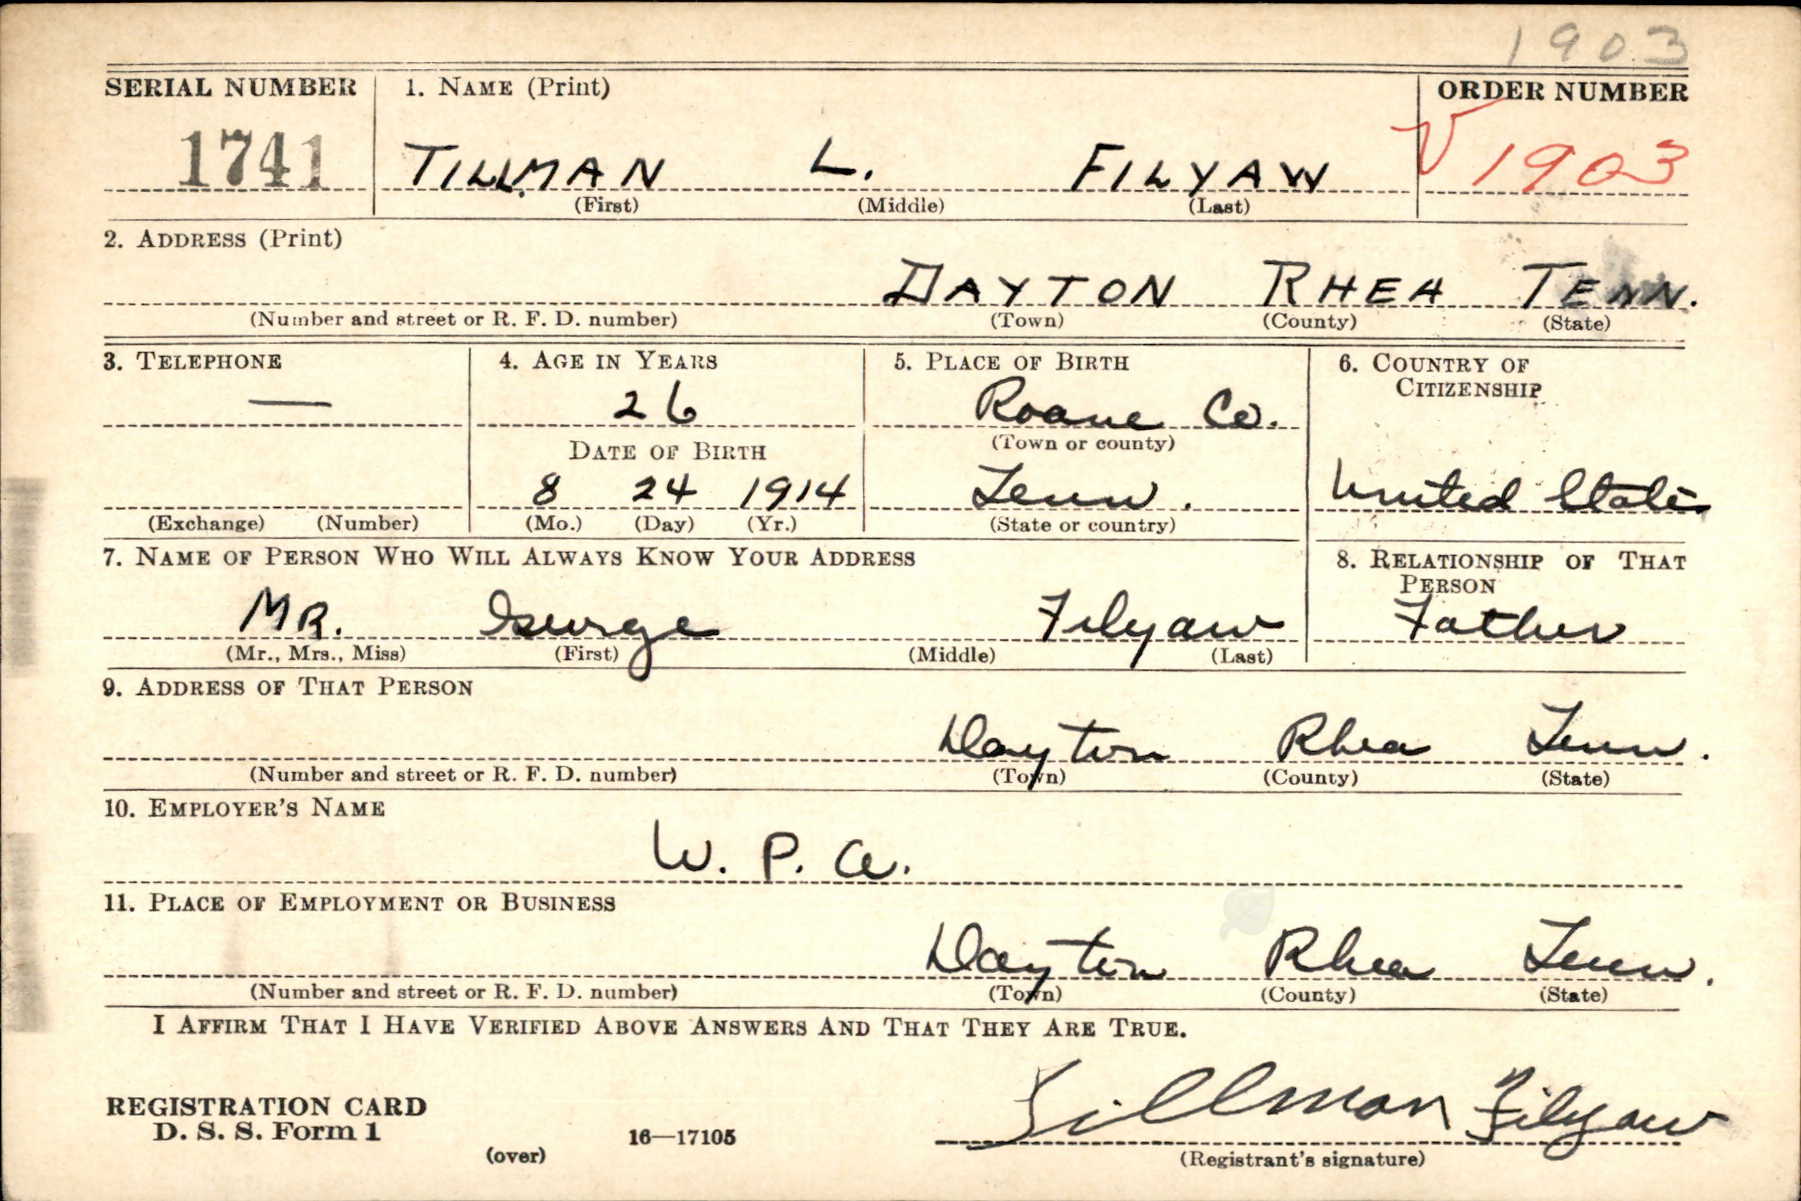 1903
SERIAL NUMBER 1. NAME (Print) ORDER NUMBER
1741 TILLMAN L. FILYAW V 1903
(First) (Middle) (Last)
2. ADDRESS (Print)
DAYTON RHEA TENN.
(Number and street or R. F. D. number) (Town) (County) (State)
3. TELEPHONE 4. AGE IN YEARS 5. PLACE OF BIRTH 6. COUNTRY OF
CITIZENSHIP
— 26 Roane Co.
(Town or county)
DATE OF BIRTH
8 24 1914 Tenn. United States
(Exchange) (Number) (Mo.) (Day) (Yr.) (State or country)
7. NAME OF PERSON WHO WILL ALWAYS KNOW YOUR ADDRESS 8. RELATIONSHIP OF THAT
PERSON
MR. George Filyaw Father
(Mr., Mrs., Miss) (First) (Middle) (Last)
9. ADDRESS OF THAT PERSON
Dayton Rhea Tenn.
(Number and street or R. F. D. number) (Town) (County) (State)
10. EMPLOYER'S NAME
W. P. A.
11. PLACE OF EMPLOYMENT OR BUSINESS
Dayton Rhea Tenn.
(Number and street or R. F. D. number) (Town) (County) (State)
I AFFIRM THAT I HAVE VERIFIED ABOVE ANSWERS AND THAT THEY ARE TRUE.
REGISTRATION CARD
D. S. S. Form 1 16—17105 Tillman Filyaw
(over) (Registrant's signature)